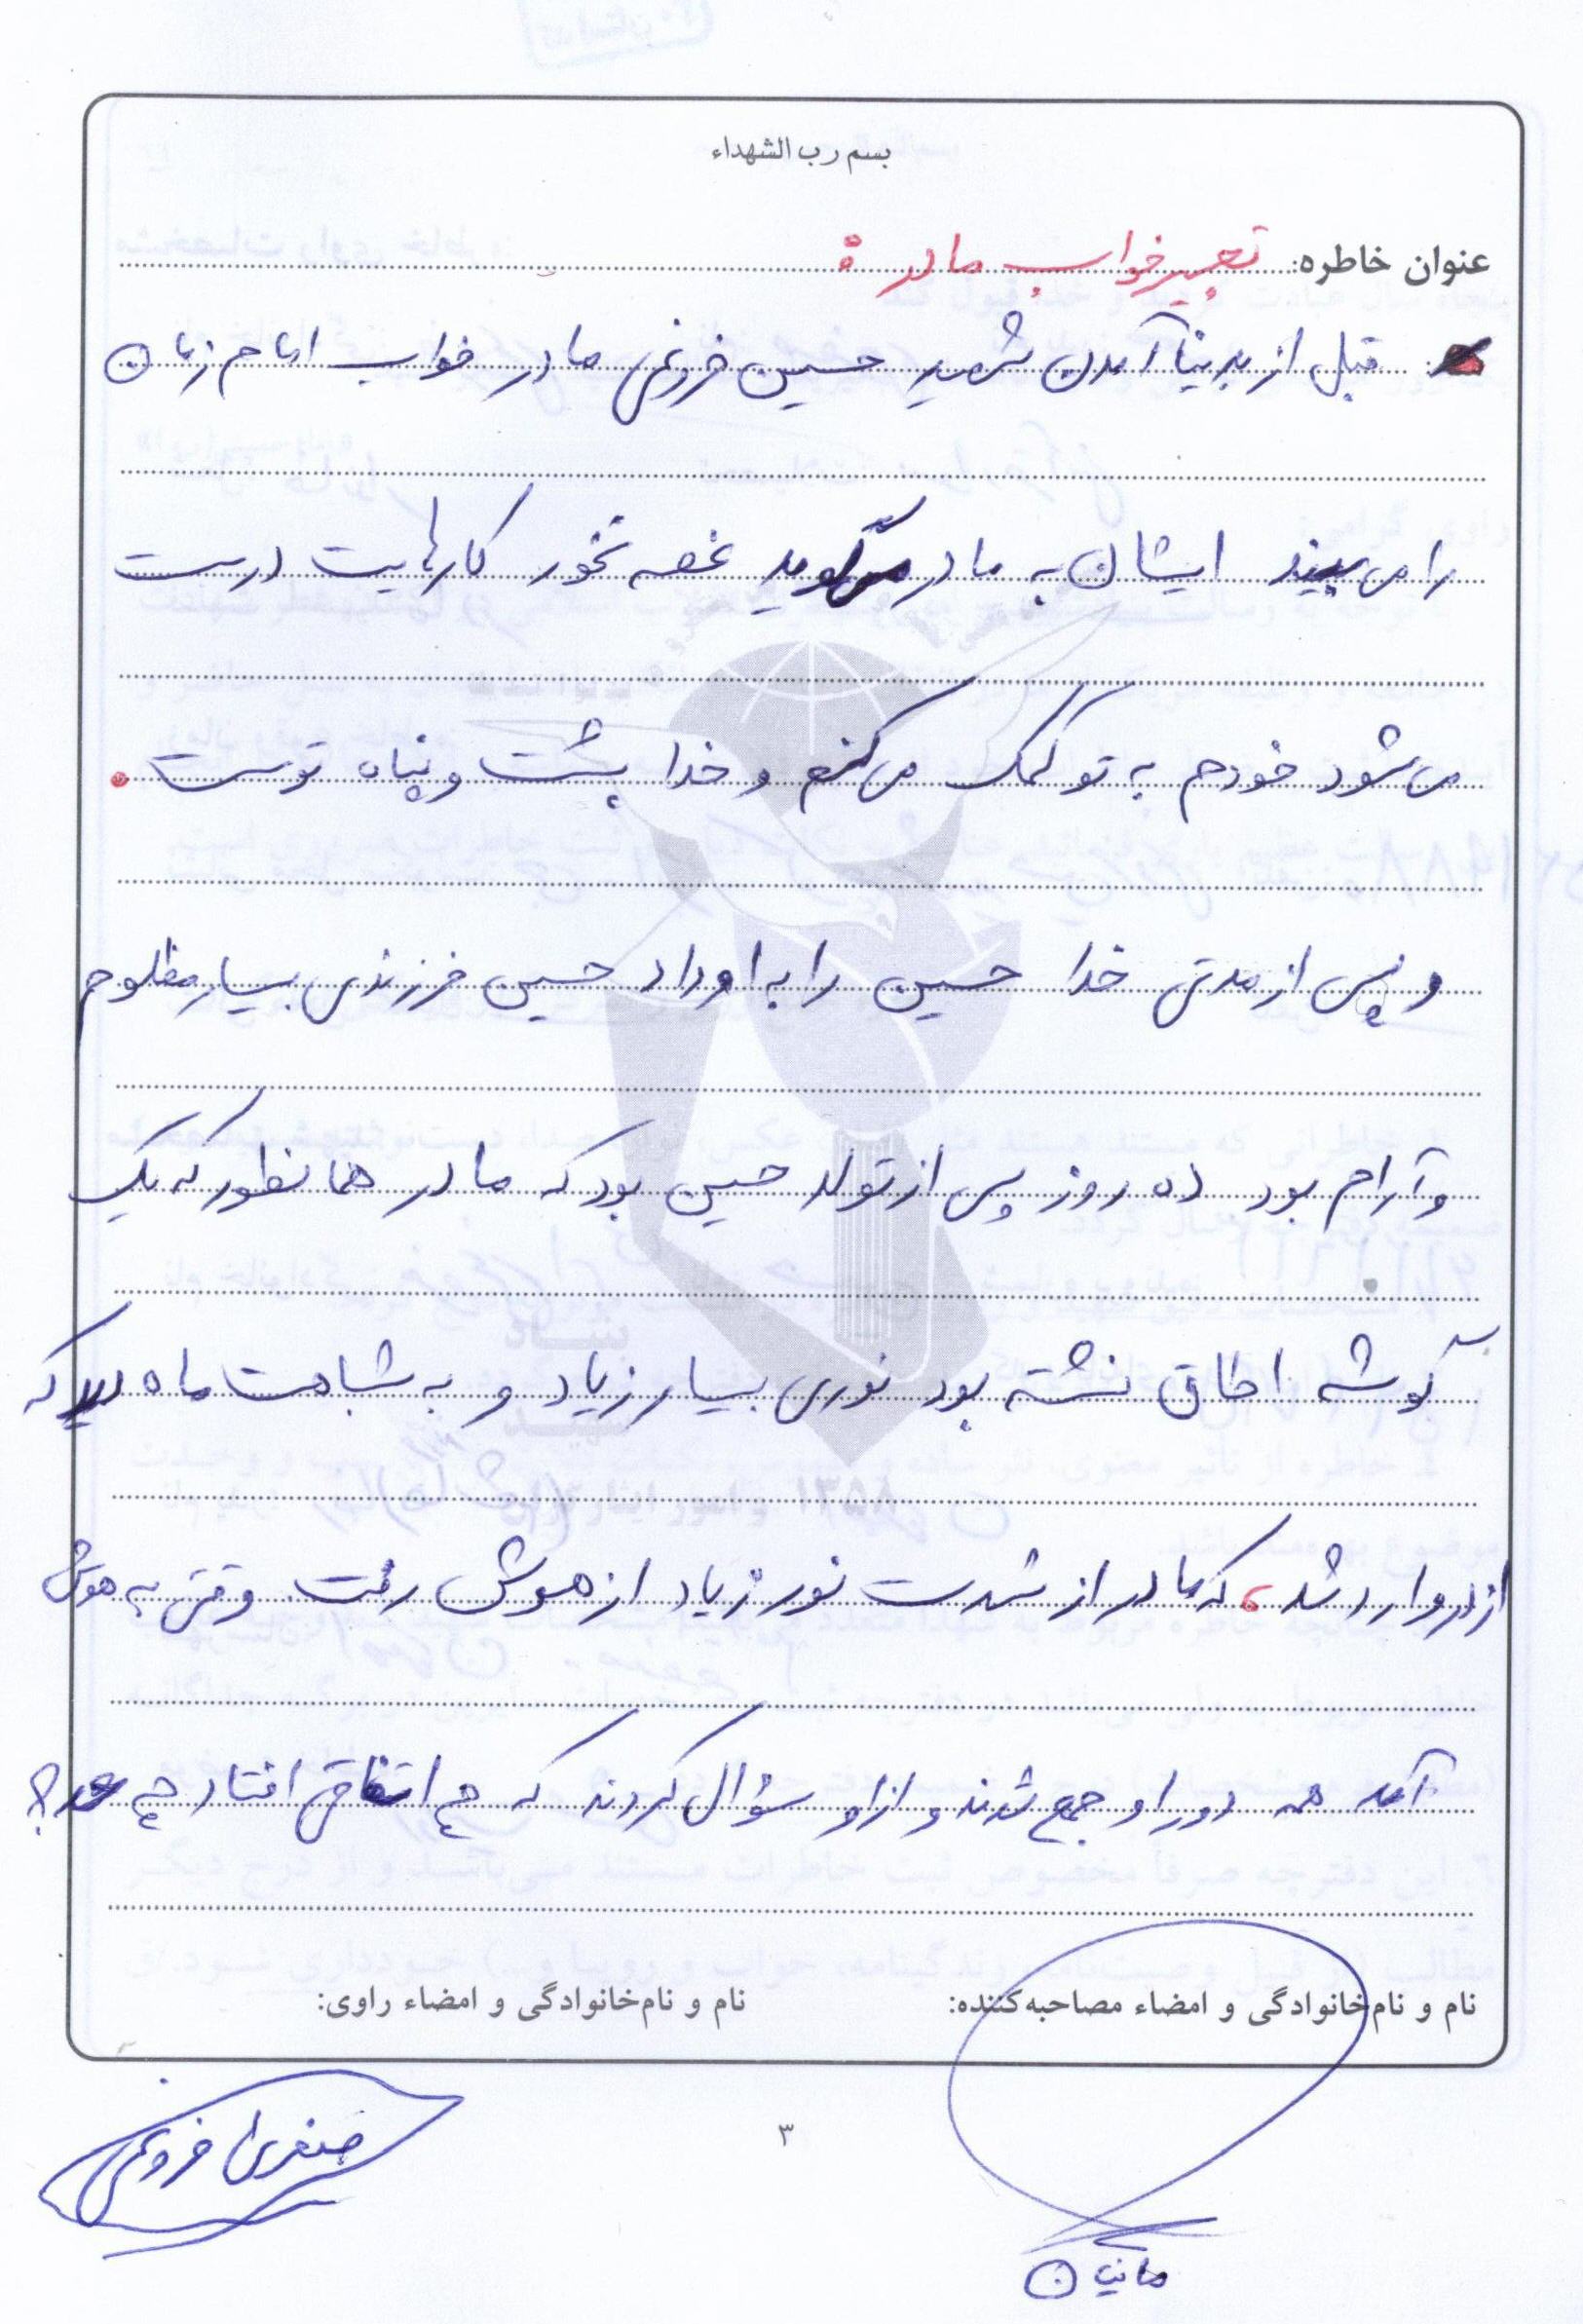 بسم رب الشهداء
عنوان خاطره: تعبیر خواب مادر :
قبل از بدنیا آمدن شهید حسین فروغی مادر خواب امام زمان
را می بیند ایشان به مادر میگوید غصه نخور کارهایت درست
می شود خودم به تو کمک می کنم و خدا پشت و پناه توست .
و پس از مدتی خدا حسین را به او داد حسین فرزندی بسیار مظلوم
و آرام بود ده روز پس از تولد حسین بود که مادر همانطور که یک
گوشه اطاق نشته بود نوری بسیار زیاد و به شباهت ماه دید که
از در وارد شد ، که مادر از شدت نور زیاد از هوش رفت . وقتی به هوش
آمد همه دور او جمع شدند و از او سؤال کردند که چه اتفاقی افتاد چه شد ؟
نام و نام‌خانوادگی و امضاء مصاحبه‌کننده: نام و نام‌خانوادگی و امضاء راوی:
صغری فروغی
۳